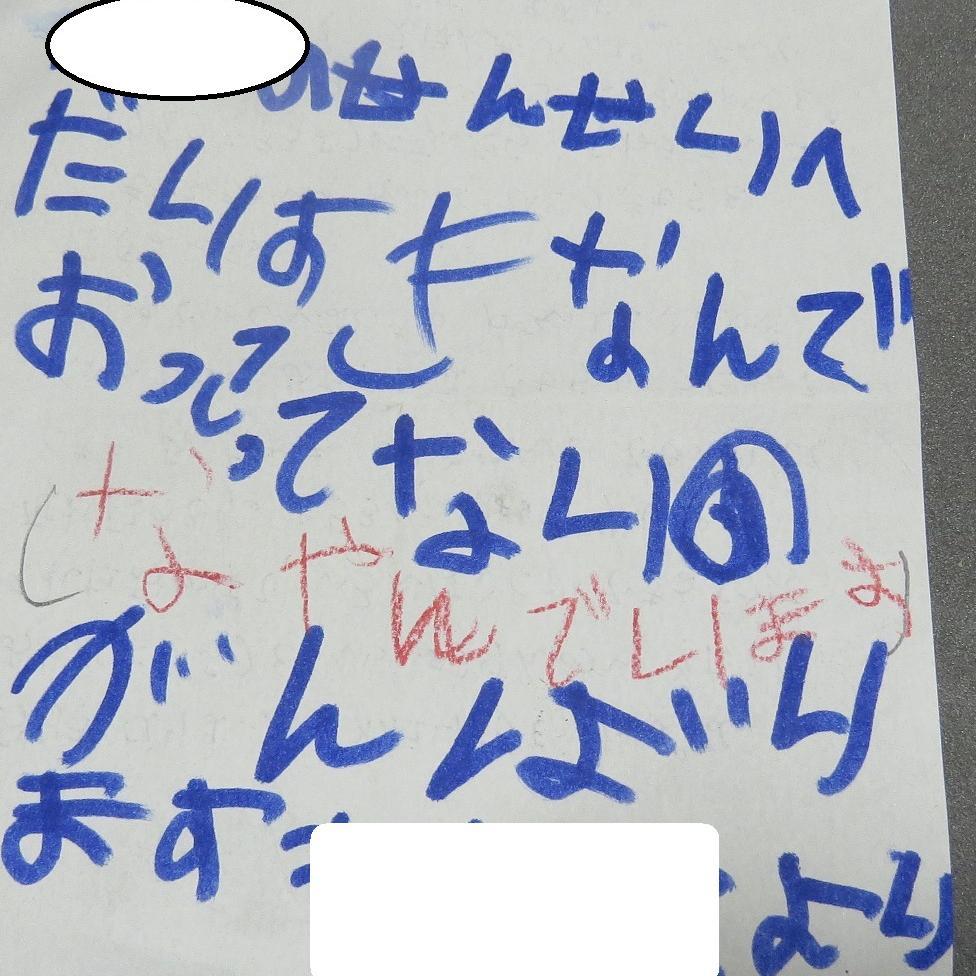 のせんせいへ
だいすきなんで
ってないの
(なやんでいます)
がんばり
ます
より